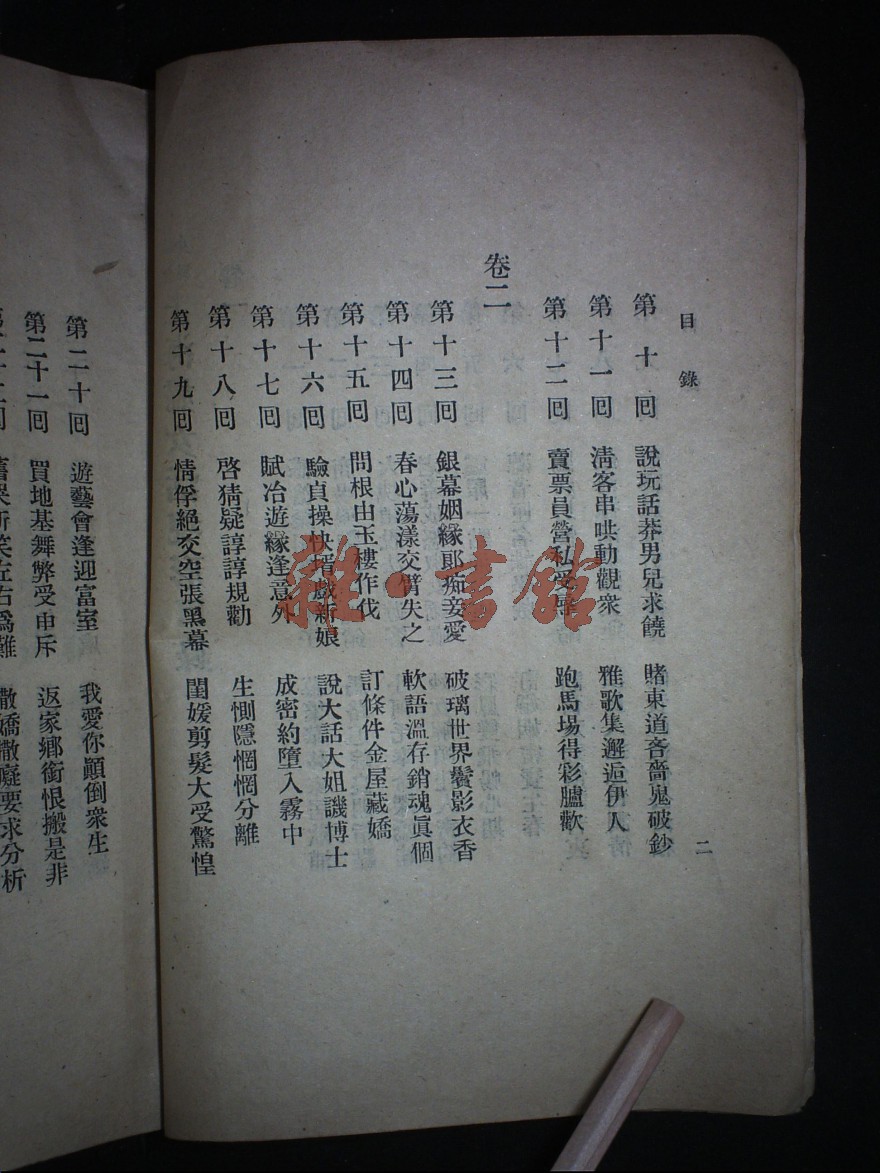 目錄
第十回 說玩話莽男兒求饒 賭東道吝嗇鬼破鈔
第十一回 清客串哄動觀衆 雅歌集邂逅伊人
第十二回 賣票員營私受辱 跑馬場得彩臚歡
卷二
第十三回 銀幕姻緣郎痴妾愛 玻璃世界鬢影衣香
第十四回 春心蕩漾交臂失之 軟語溫存銷魂眞個
第十五回 問根由玉樓作伐 訂條件金屋藏嬌
第十六回 驗貞操快壻戲新娘 說大話大姐譏博士
第十七回 賦冶遊緣逢意外 成密約墮入霧中
第十八回 啓猜疑諄諄規勸 生惻隱惘惘分離
第十九回 情俘絕交空張黑幕 閨媛剪髮大受驚惶
二
第二十回 遊藝會逢迎富室 我愛你顚倒衆生
第二十一回 買地基舞弊受申斥 返家鄉銜恨搬是非
左右爲難 撒嬌撒癡要求分析
雜·書館